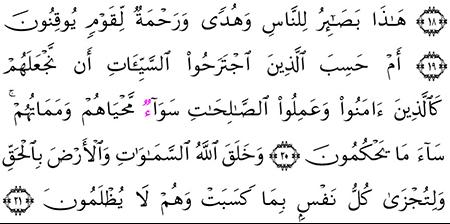 ﴿١٨﴾ هَـٰذَا بَصَـٰٓئِرُ لِلنَّاسِ وَهُدًى وَرَحْمَةٌ لِّقَوْمٍ يُوقِنُونَ
﴿١٩﴾ أَمْ حَسِبَ ٱلَّذِينَ ٱجْتَرَحُوا۟ ٱلسَّيِّـَٔاتِ أَن نَّجْعَلَهُمْ
كَٱلَّذِينَ ءَامَنُوا۟ وَعَمِلُوا۟ ٱلصَّـٰلِحَـٰتِ سَوَآءٌ مَّحْيَاهُمْ وَمَمَاتُهُمْ ۚ
سَآءَ مَا يَحْكُمُونَ ﴿٢٠﴾ وَخَلَقَ ٱللَّهُ ٱلسَّمَـٰوَٰتِ وَٱلْأَرْضَ بِٱلْحَقِّ
وَلِتُجْزَىٰ كُلُّ نَفْسٍۭ بِمَا كَسَبَتْ وَهُمْ لَا يُظْلَمُونَ ﴿٢١﴾